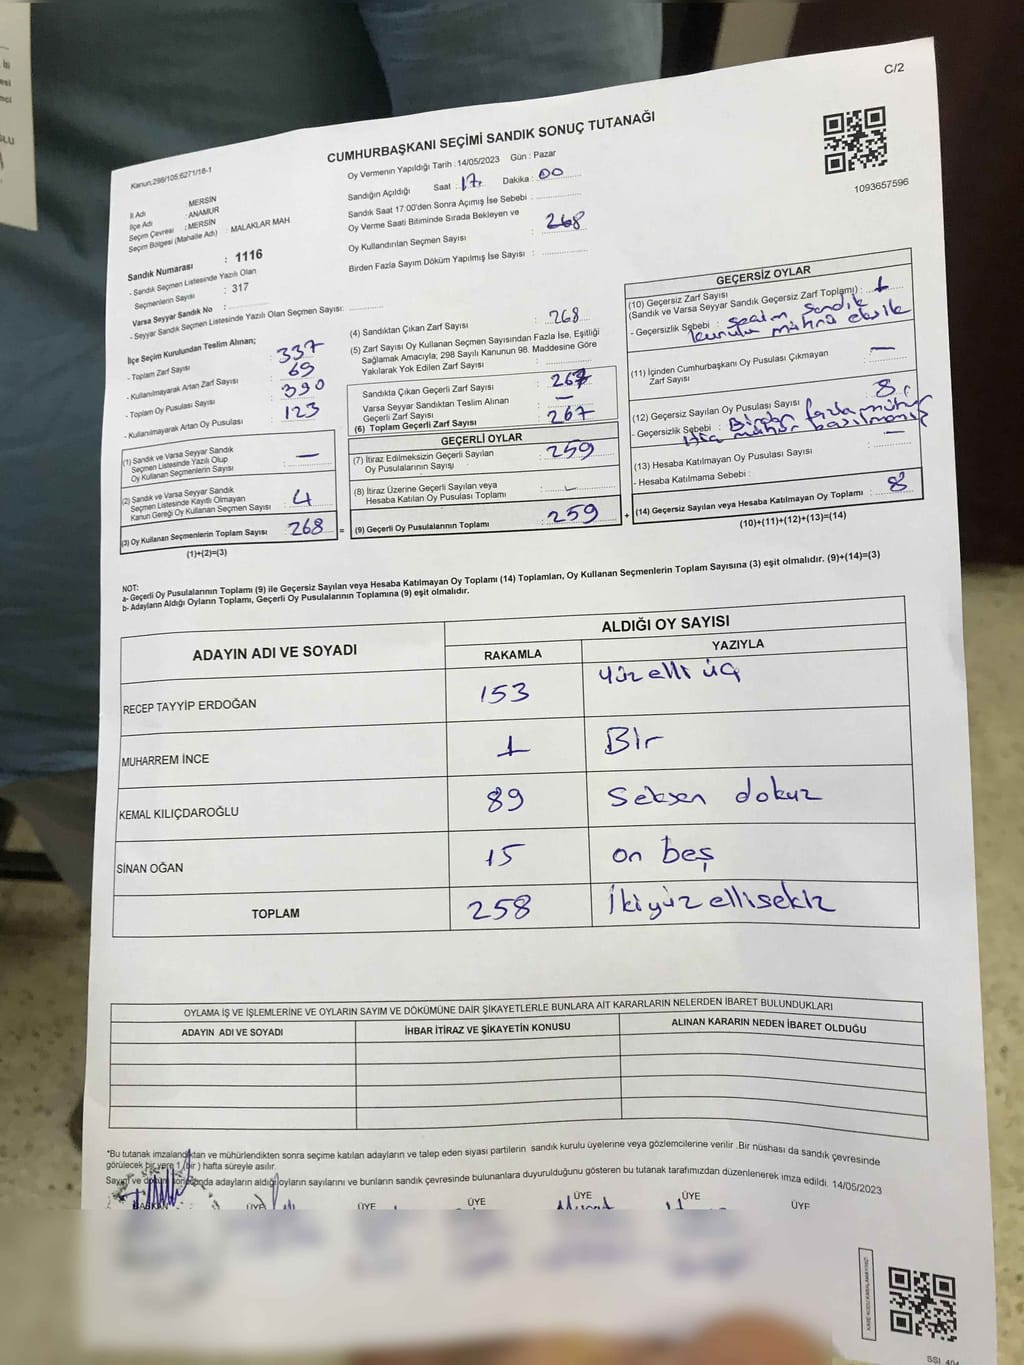 C/2
Kanun:298/105;6271/18-1
CUMHURBAŞKANI SEÇİMİ SANDIK SONUÇ TUTANAĞI
1093657596
İl Adı : MERSİN
İlçe Adı : ANAMUR
Seçim Çevresi : MERSİN
Seçim Bölgesi (Mahalle Adı) : MALAKLAR MAH
Sandık Numarası : 1116
- Sandık Seçmen Listesinde Yazılı Olan
Seçmenlerin Sayısı : 317
Varsa Seyyar Sandık No :
- Seyyar Sandık Seçmen Listesinde Yazılı Olan Seçmen Sayısı:
İlçe Seçim Kurulundan Teslim Alınan;
- Toplam Zarf Sayısı : 337
- Kullanılmayarak Artan Zarf Sayısı : 69
- Toplam Oy Pusulası Sayısı : 390
- Kullanılmayarak Artan Oy Pusulası : 123
(1) Sandık ve Varsa Seyyar Sandık
Seçmen Listesinde Yazılı Olup
Oy Kullanan Seçmenlerin Sayısı : —
(2) Sandık ve Varsa Seyyar Sandık
Seçmen Listesinde Kayıtlı Olmayan
Kanun Gereği Oy Kullanan Seçmen Sayısı : 4
(3) Oy Kullanan Seçmenlerin Toplam Sayısı : 268
(1)+(2)=(3)
Oy Vermenin Yapıldığı Tarih : 14/05/2023 Gün : Pazar
Sandığın Açıldığı Saat : 17 Dakika : 00
Sandık Saat 17:00'den Sonra Açımış İse Sebebi :
Oy Verme Saati Bitiminde Sırada Bekleyen ve
Oy Kullandırılan Seçmen Sayısı : 268
Birden Fazla Sayım Döküm Yapılmış İse Sayısı :
(4) Sandıktan Çıkan Zarf Sayısı : 268
(5) Zarf Sayısı Oy Kullanan Seçmen Sayısından Fazla İse, Eşitliği
Sağlamak Amacıyla; 298 Sayılı Kanunun 98. Maddesine Göre
Yakılarak Yok Edilen Zarf Sayısı :
Sandıkta Çıkan Geçerli Zarf Sayısı : 267
Varsa Seyyar Sandıktan Teslim Alınan
Geçerli Zarf Sayısı : —
(6) Toplam Geçerli Zarf Sayısı : 267
GEÇERLİ OYLAR
(7) İtiraz Edilmeksizin Geçerli Sayılan
Oy Pusulalarının Sayısı : 259
(8) İtiraz Üzerine Geçerli Sayılan veya
Hesaba Katılan Oy Pusulası Toplamı :
= (9) Geçerli Oy Pusulalarının Toplamı : 259
GEÇERSİZ OYLAR
(10) Geçersiz Zarf Sayısı
(Sandık ve Varsa Seyyar Sandık Geçersiz Zarf Toplamı) : 1
- Geçersizlik Sebebi : seçim sandık
kurulu mührü eksik
(11) İçinden Cumhurbaşkanı Oy Pusulası Çıkmayan
Zarf Sayısı : —
(12) Geçersiz Sayılan Oy Pusulası Sayısı : 8
- Geçersizlik Sebebi : Birden fazla mühür
(13) Hesaba Katılmayan Oy Pusulası Sayısı : —
- Hesaba Katılmama Sebebi :
+ (14) Geçersiz Sayılan veya Hesaba Katılmayan Oy Toplamı : 8
(10)+(11)+(12)+(13)=(14)
NOT:
a- Geçerli Oy Pusulalarının Toplamı (9) ile Geçersiz Sayılan veya Hesaba Katılmayan Oy Toplamı (14) Toplamları, Oy Kullanan Seçmenlerin Toplam Sayısına (3) eşit olmalıdır. (9)+(14)=(3)
b- Adayların Aldığı Oyların Toplamı, Geçerli Oy Pusulalarının Toplamına (9) eşit olmalıdır.
ADAYIN ADI VE SOYADI
ALDIĞI OY SAYISI
RAKAMLA YAZIYLA
RECEP TAYYİP ERDOĞAN 153 Yüz elli üç
MUHARREM İNCE 1 Bir
KEMAL KILIÇDAROĞLU 89 Seksen dokuz
SİNAN OĞAN 15 on beş
TOPLAM 258 İkiyüz ellisekiz
OYLAMA İŞ VE İŞLEMLERİNE VE OYLARIN SAYIM VE DÖKÜMÜNE DAİR ŞİKAYETLERLE BUNLARA AİT KARARLARIN NELERDEN İBARET BULUNDUKLARI
ADAYIN ADI VE SOYADI İHBAR İTİRAZ VE ŞİKAYETİN KONUSU ALINAN KARARIN NEDEN İBARET OLDUĞU
"Bu tutanak imzalandıktan ve mühürlendikten sonra seçime katılan adayların ve talep eden siyasi partilerin sandık kurulu üyelerine veya gözlemcilerine verilir .Bir nüshası da sandık çevresinde
görülecek bir yere 1 (bir ) hafta süreyle asılır.
Sayım ve döküm sonlarında adayların aldığı oyların sayılarını ve bunların sandık çevresinde bulunanlara duyurulduğunu gösteren bu tutanak tarafımızdan düzenlenerek imza edildi. 14/05/2023
BAŞKAN ÜYE ÜYE ÜYE ÜYE ÜYE ÜYE